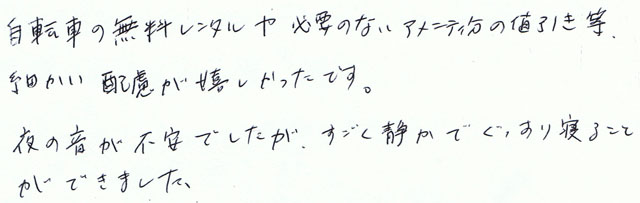 自転車の無料レンタルや必要のないアメニティ分の値引き等、
細かい配慮が嬉しかったです。
夜の音が不安でしたが、すごく静かでぐっすり寝ること
ができました、